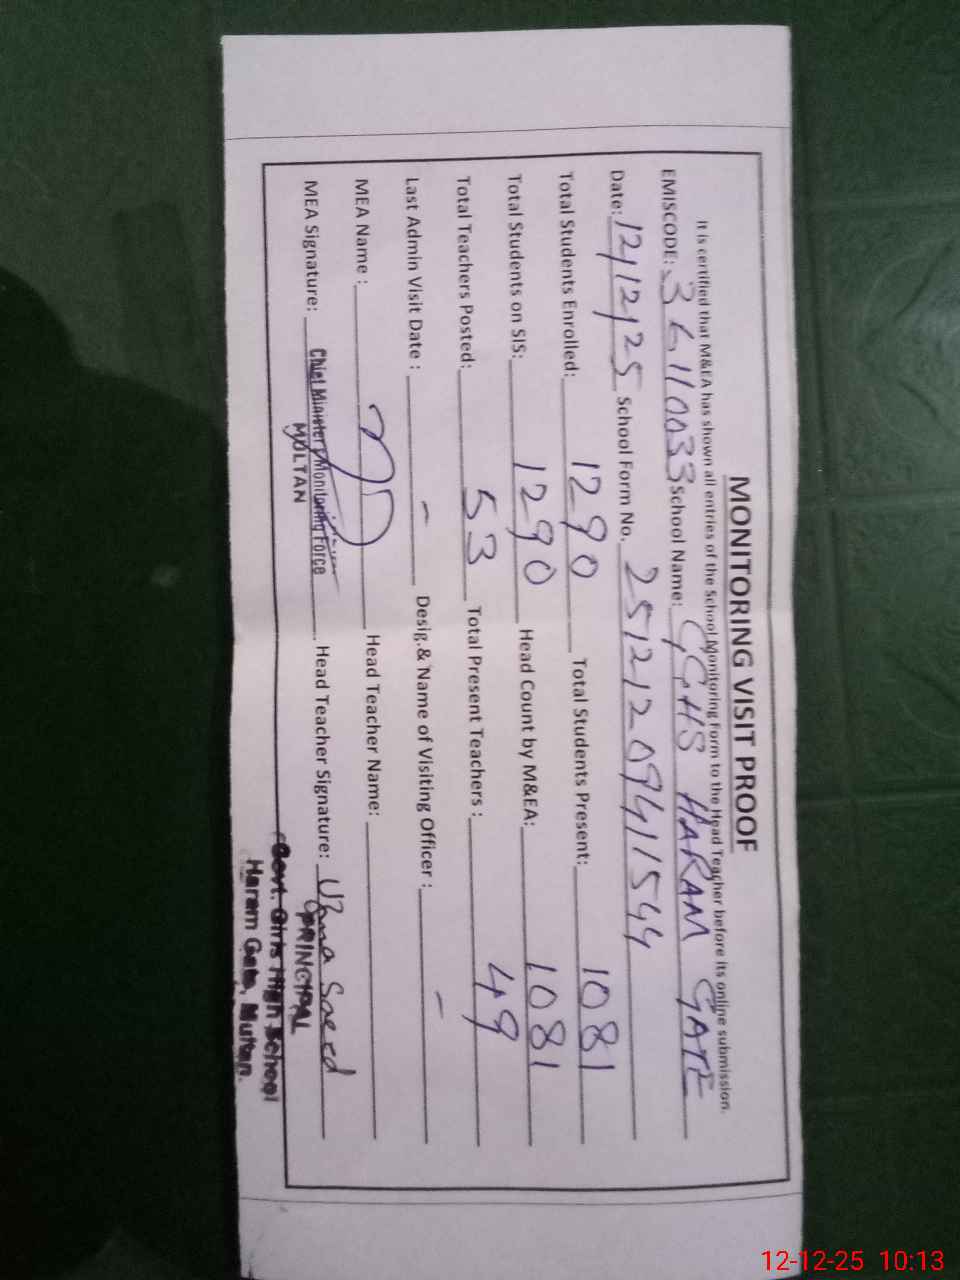 MONITORING VISIT PROOF
It is certified that M&EA has shown all entries of the School Monitoring Form to the Head Teacher before its online submission.
EMISCODE: 36110033 School Name: GGHS HARAM GATE
Date: 12/12/25 School Form No. 25121209411544
Total Students Enrolled: 1290 Total Students Present: 1081
Total Students on SIS: 1290 Head Count by M&EA: 1081
Total Teachers Posted: 53 Total Present Teachers : 49
Last Admin Visit Date : - Desig.& Name of Visiting Officer : -
MEA Name : Head Teacher Name:
MEA Signature: Head Teacher Signature: Uzma Saeed
Chief Minister's Monitoring Force
MULTAN
PRINCIPAL
Govt. Girls High School
Haram Gate, Multan.
12-12-25 10:13